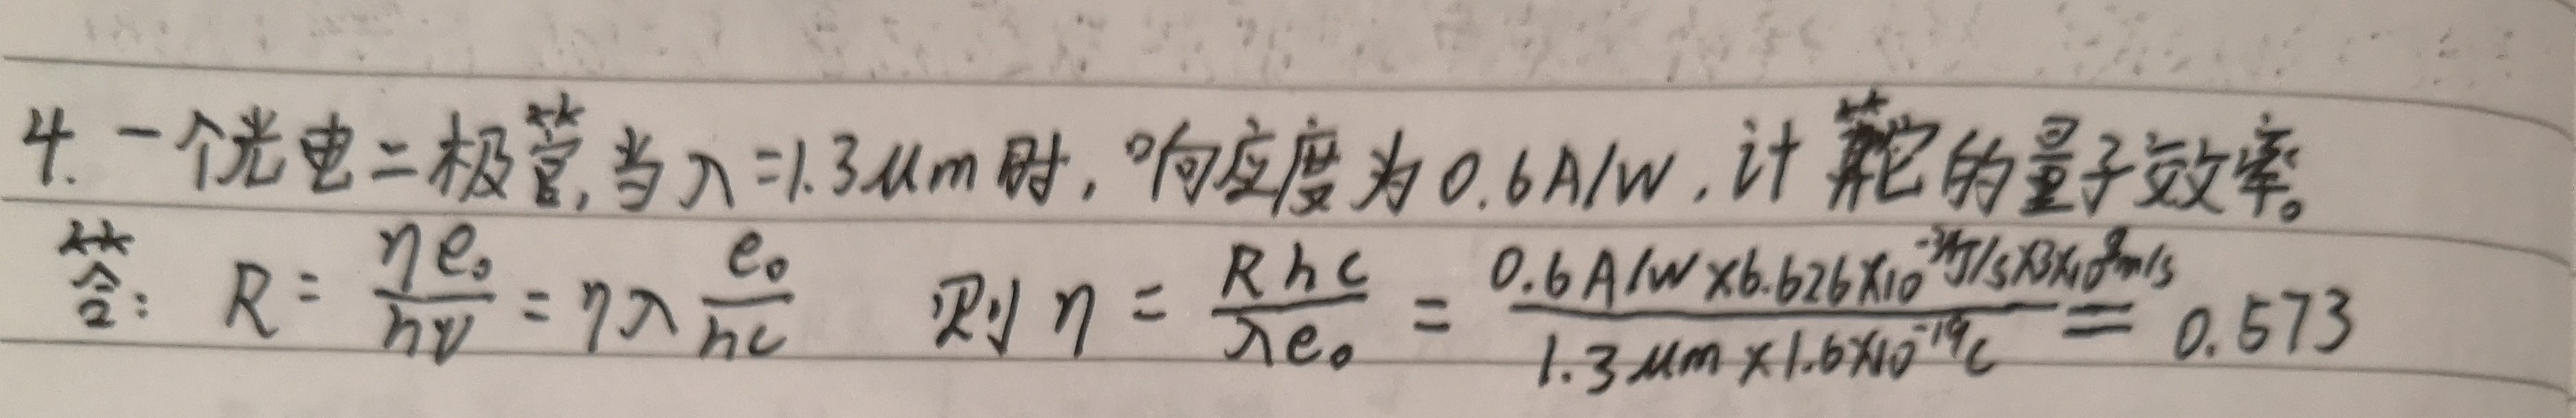 4. 一个光电二极管,当λ=1.3μm时,响应度为0.6A/W,计算它的量子效率。
答: R = ηe₀/hν = ηλ e₀/hc 则 η = Rhc/λe₀ = 0.6A/W×6.626×10⁻³⁴J/s×3×10⁸m/s / 1.3μm×1.6×10⁻¹⁹C = 0.573